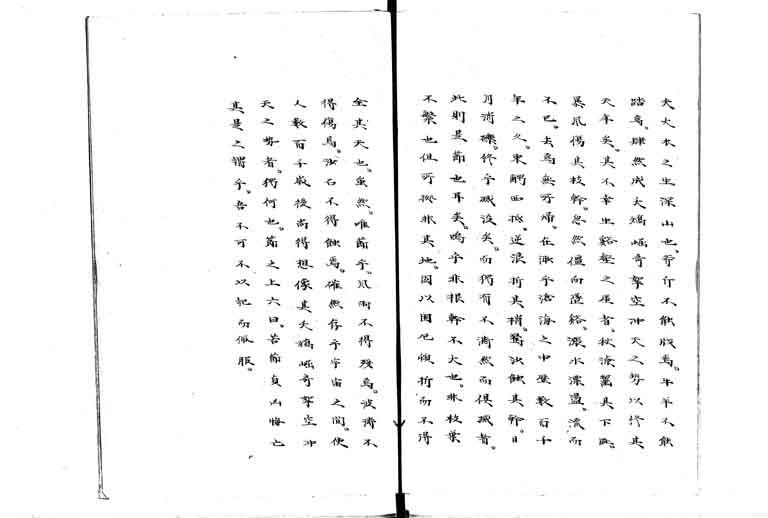 夫大木之生深山也。斧斤不能戕焉。牛羊不能
踏焉。肆然成夭矯崛奇挐空冲天之勢以終其
天年矣。其不幸生谿壑之崖者。秋潦齧其下
暴風傷其枝幹。忽然僵而墮谿。溪水漂盪。流而
不已。去焉無所歸。在洲乎滄海之中歷數百千
年之久。東觸西抵。逆浪折其梢。驚沙蝕其幹。日
月消礫。終乎滅沒矣。而獨有不漸然而俱滅者。
此則是節也耳矣。嗚乎非根幹不大也。非枝葉
不繁也但所據非其地。因以困厄摧折而不得
全其天也。雖然。唯節乎。風雨不得殘焉。波濤不
得傷焉。沙石不得蝕焉。確然存乎宇宙之間。使
人數百千歲後尚得想像其夭矯崛奇挐空冲
天之勢者。獨何也。節之上六曰。苦節貞凶悔亡
其是之謂乎。吾不可不以記而佩服。